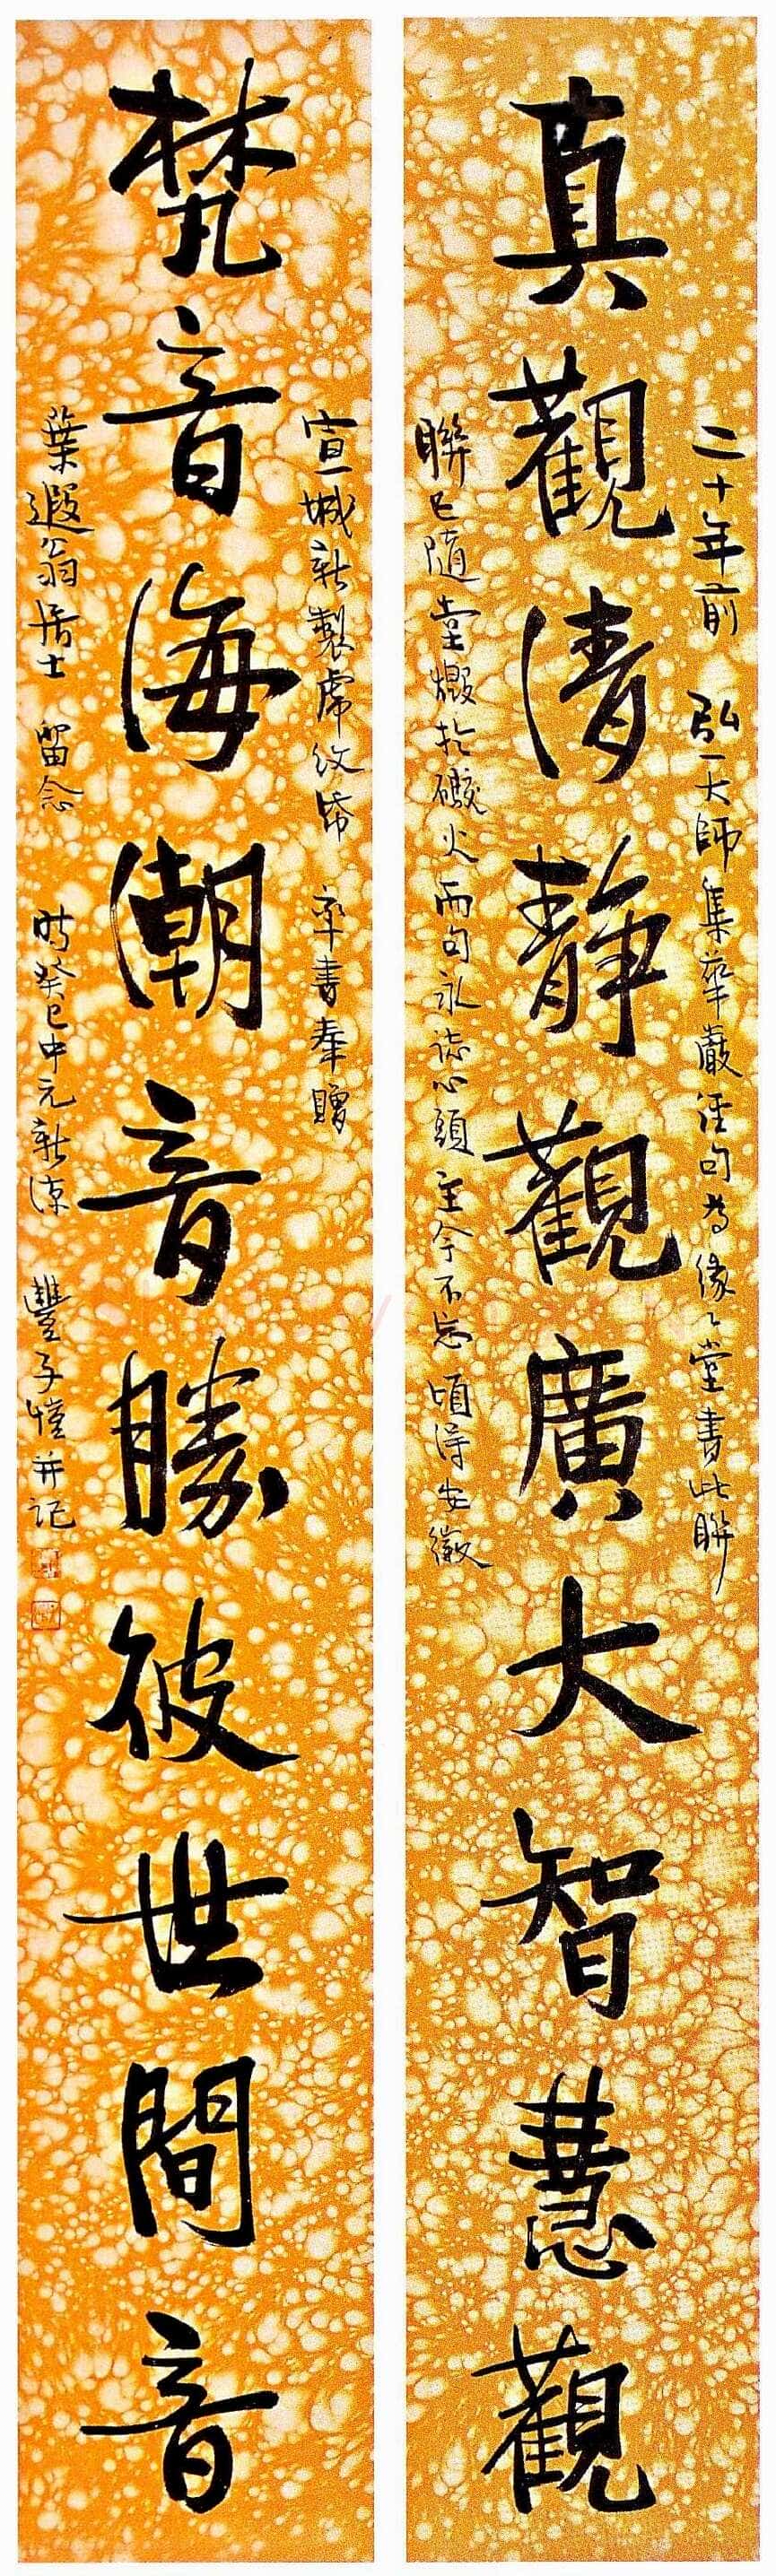 真觀清静觀廣大智慧觀
二十年前 弘一大師集華嚴經句為緣々堂書此聯
聯已隨堂燬於礮火而句永誌心頭至今不忘頃得安徽
梵音海潮音勝彼世間音
宣城新製虎紋牋 率書奉贈
葉遐翁居士 留念 时癸巳中元新涼 豐子愷并記